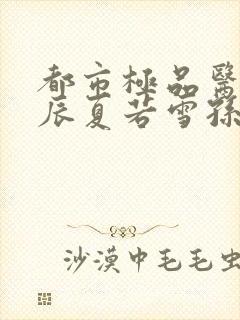 都市極品醫
辰夏若雪孫
沙漠中毛毛虫